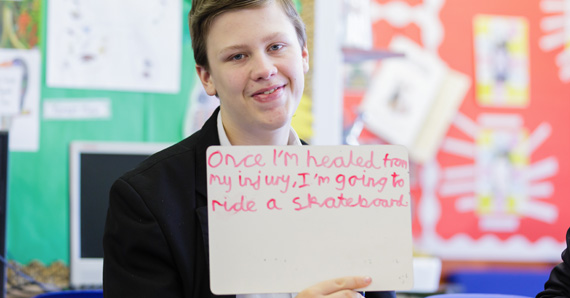 Once I'm healed from
my injury, I'm going to
ride a skateboard